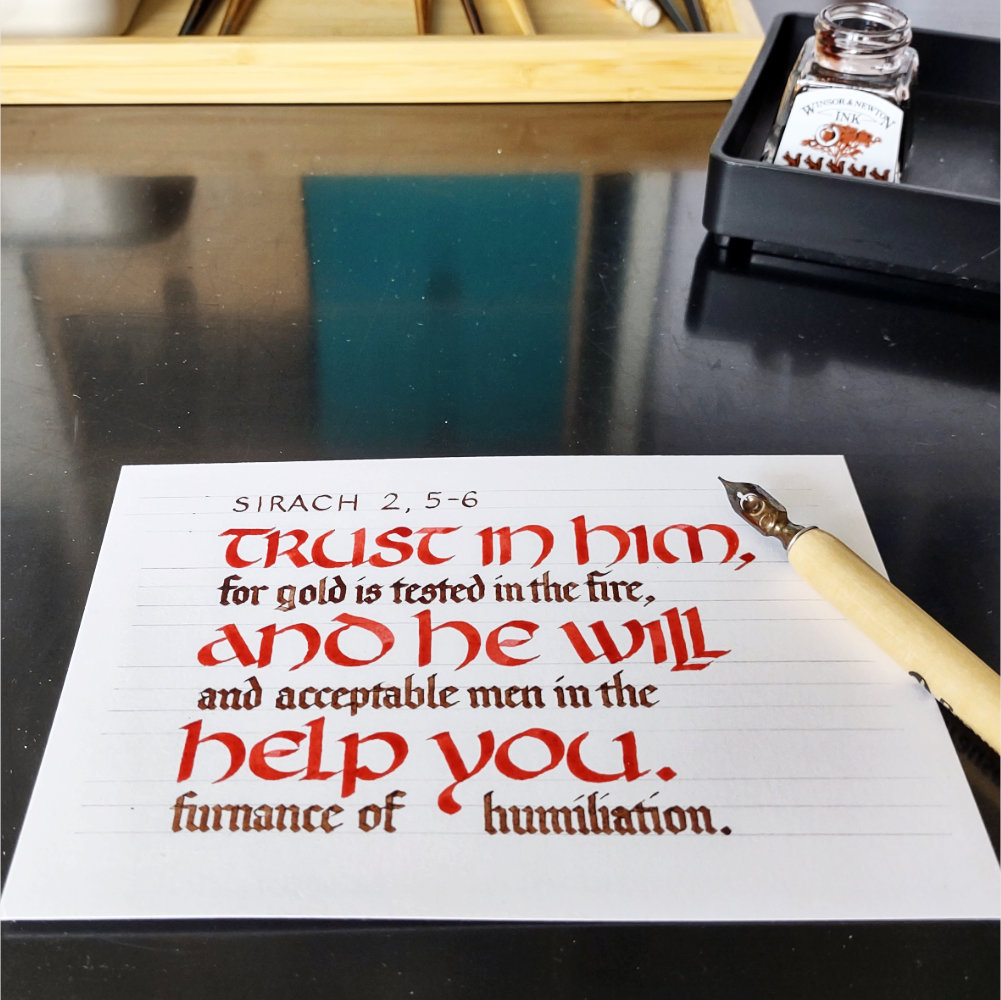 WINSOR & NEWTON
INK
SIRACH 2, 5-6
TRUST IN HIM,
for gold is tested in the fire,
AND HE WILL
and acceptable men in the
HELP YOU.
furnance of humiliation.